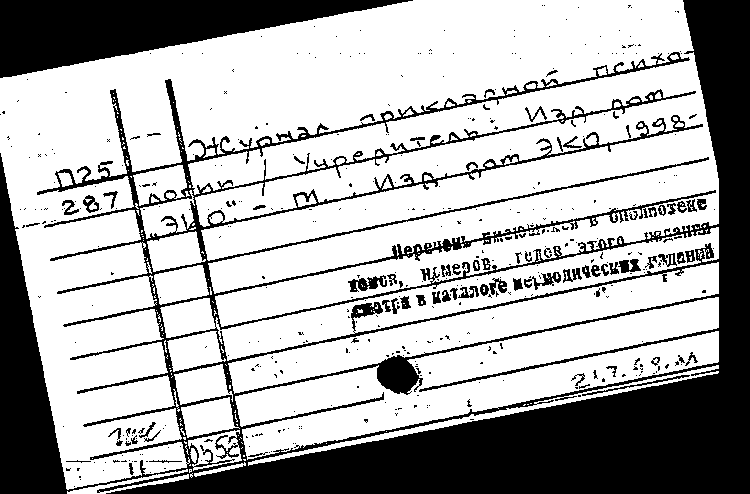 П25
287
Журнал прикладной психо-
логии / Учредитель: Изд. дом
„ЭКО". - М.: Изд. дом ЭКО, 1998-
Перечень имеющихся в библиотеке
томов, номеров, годов этого издания
смотри в каталоге периодических изданий
0558
11